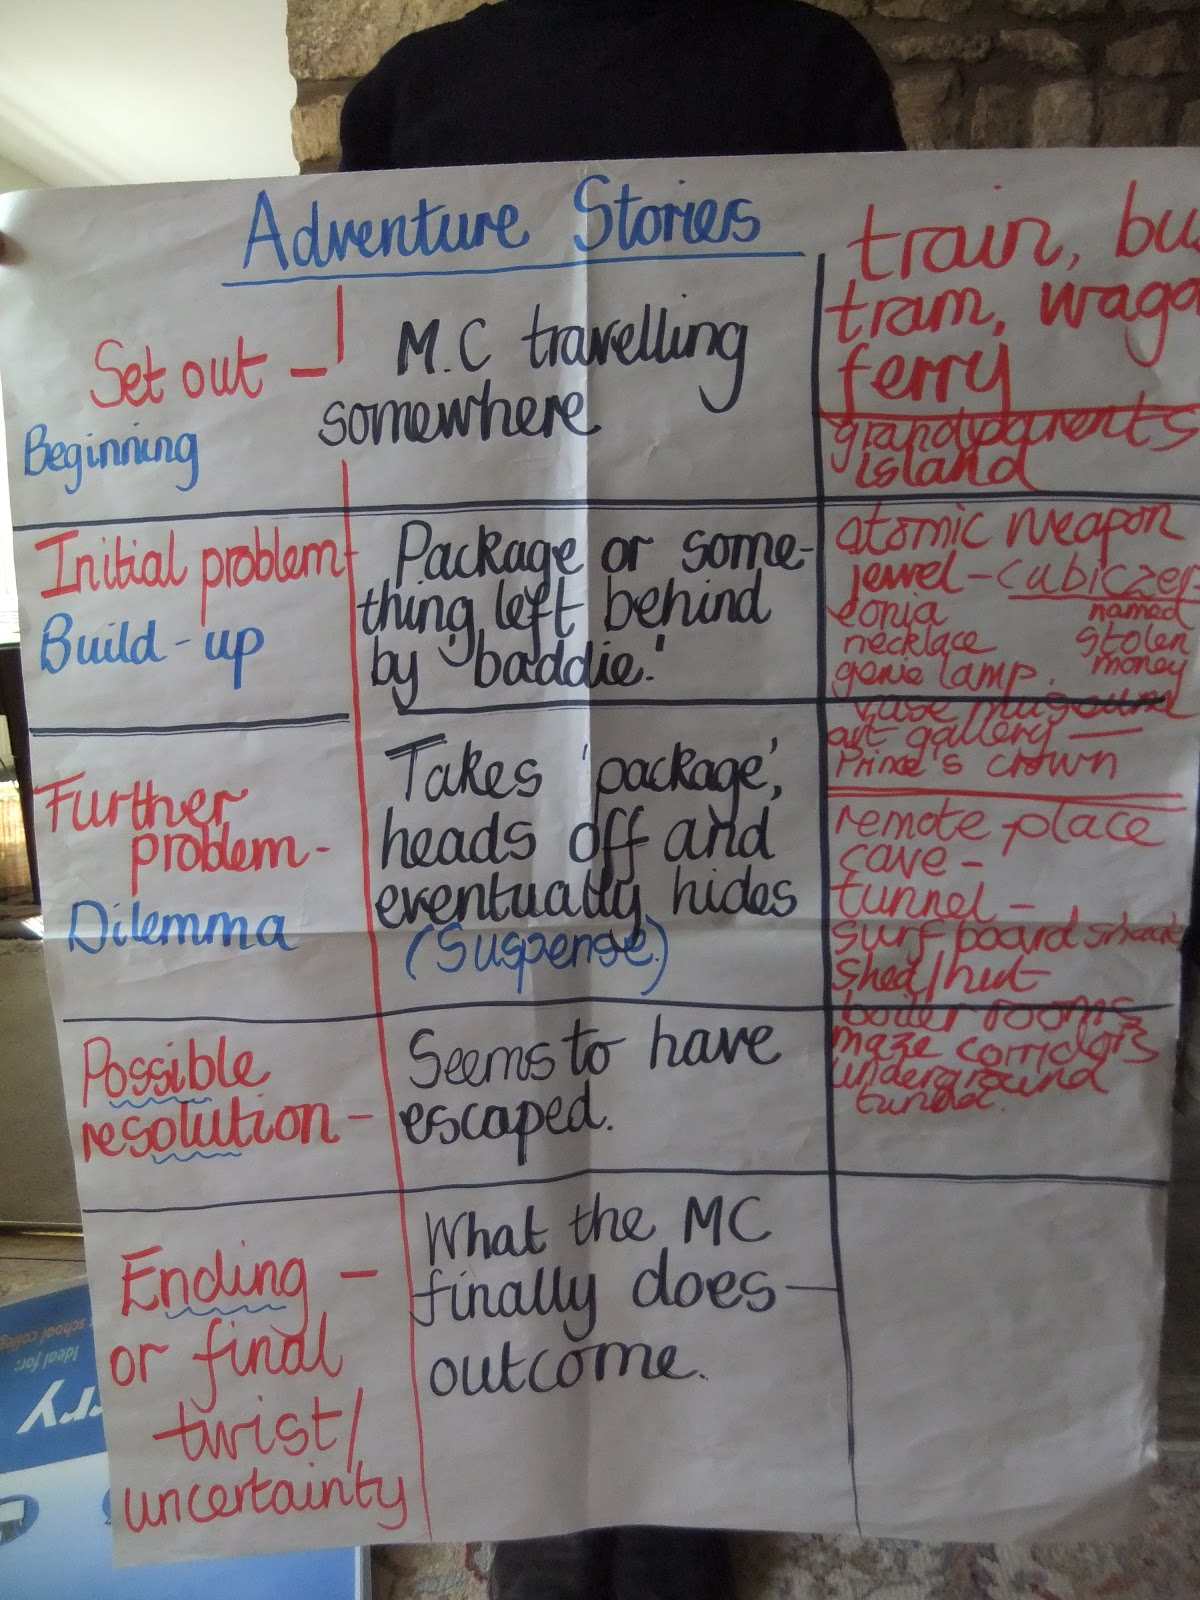 Adventure Stories
Set out –
Beginning
M.C travelling
somewhere
train, bu
tram, wago
ferry
grandparents
island
Initial problem
Build-up
Package or some-
thing left behind
by 'baddie.'
atomic weapon
jewel - cubiczer
conia named
necklace stolen
genie lamp. money
vase
art gallery —
Prince's crown
Further
problem -
Dilemma
Takes 'package',
heads off and
eventually hides
(Suspense)
remote place
cave -
tunnel -
surf board shack
shed/hut
boiler rooms
maze corridors
underground
tunnel.
Possible
resolution –
Seems to have
escaped.
Ending –
or final
twist/
uncertainty
What the MC
finally does –
outcome.
school colleg
Ideal for:
rry